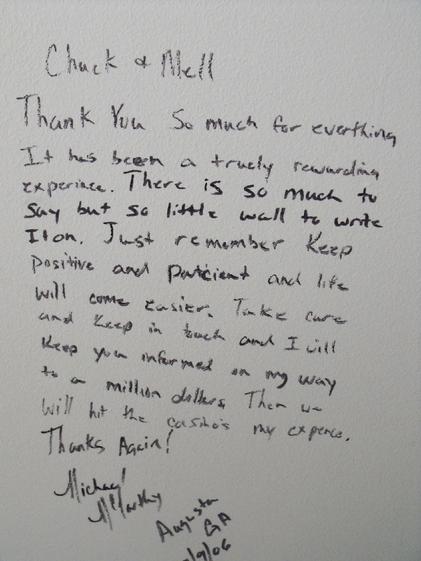 Chuck & Mell
Thank You So much for everthing
It has been a truely rewarding
experince. There is so much to
say but so little wall to write
It on. Just remember Keep
positive and paticient and life
will come easier. Take care
and Keep in touch and I will
Keep you informed on my way
to a million dollars. Then we
will hit the casino's my expence.
Thanks Again!
Michael
Augusta
GA
/9/06